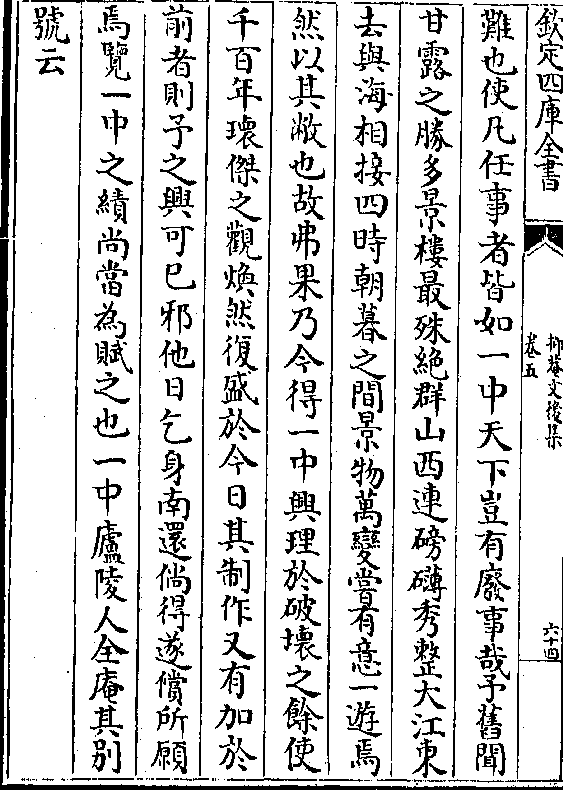 欽定四庫全書
抑菴文後集
卷五
六十四
難也使凡任事者皆如一中天下豈有廢事哉予舊聞
甘露之勝多景樓最殊絶群山西連磅礴秀整大江東
去與海相接四時朝暮之間景物萬變嘗有意一遊焉
然以其敝也故弗果乃今得一中興理於破壞之餘使
千百年瓌傑之觀煥然復盛於今日其制作又有加於
前者則予之興可已邪他日乞身南還倘得遂償所願
焉覽一中之績尚當為賦之也一中廬陵人全庵其别
號云